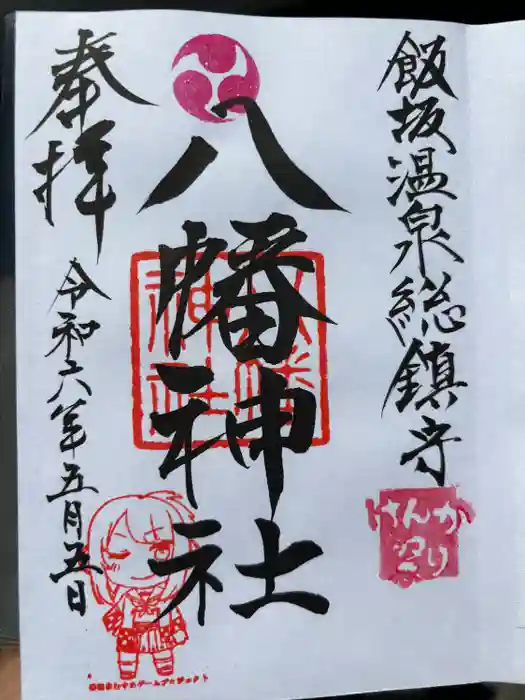 飯坂温泉総鎮守
けんか
祭り
八幡神社
八幡
神社
奉拝
令和六年五月五日